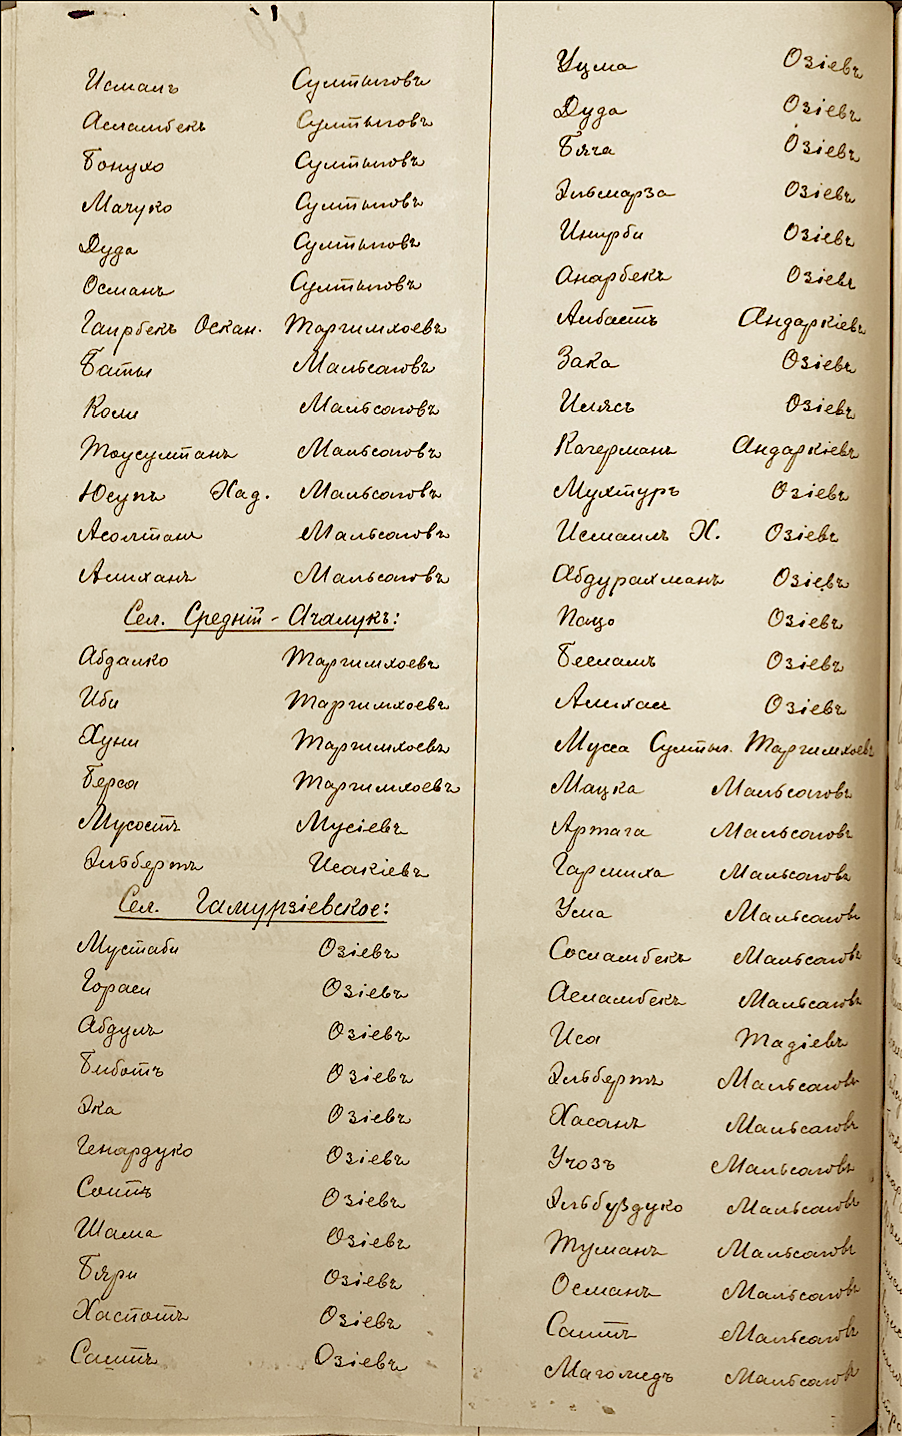 Исмаилъ Султыговъ
Асламбекъ Султыговъ
Бонухо Султыговъ
Мачуко Султыговъ
Дуда Султыговъ
Османъ Султыговъ
Гаирбекъ Оскан. Таргимхоевъ
Баты Мальсаговъ
Коли Мальсаговъ
Тоусултанъ Мальсаговъ
Юсупъ Хад. Мальсаговъ
Асолтанъ Мальсаговъ
Алиханъ Мальсаговъ
Сел. Средній-Ачалукъ:
Абдалко Таргимхоевъ
Иби Таргимхоевъ
Хуни Таргимхоевъ
Берса Таргимхоевъ
Мусостъ Мусіевъ
Эльбертъ Исакіевъ
Сел. Гамурзіевское:
Мустаби Озіевъ
Гораси Озіевъ
Абдулъ Озіевъ
Биботъ Озіевъ
Эка Озіевъ
Генардуко Озіевъ
Саитъ Озіевъ
Шама Озіевъ
Бяри Озіевъ
Хаспотъ Озіевъ
Саитъ Озіевъ
Уцма Озіевъ
Дуда Озіевъ
Бяча Озіевъ
Эльмарза Озіевъ
Инурби Озіевъ
Анарбекъ Озіевъ
Албастъ Андаркіевъ
Зака Озіевъ
Илясъ Озіевъ
Кагерманъ Андаркіевъ
Мухтуръ Озіевъ
Исмаилъ Х. Озіевъ
Абдурахманъ Озіевъ
Пацо Озіевъ
Бесламъ Озіевъ
Алихан Озіевъ
Мусса Султыг. Таргимхоевъ
Мацка Мальсаговъ
Артага Мальсаговъ
Гармиха Мальсаговъ
Ума Мальсаговъ
Сосламбекъ Мальсаговъ
Асламбекъ Мальсаговъ
Иса Тадіевъ
Эльбертъ Мальсаговъ
Хасанъ Мальсаговъ
Учозъ Мальсаговъ
Эльбуздуко Мальсаговъ
Туманъ Мальсаговъ
Османъ Мальсаговъ
Саитъ Мальсаговъ
Магомедъ Мальсаговъ